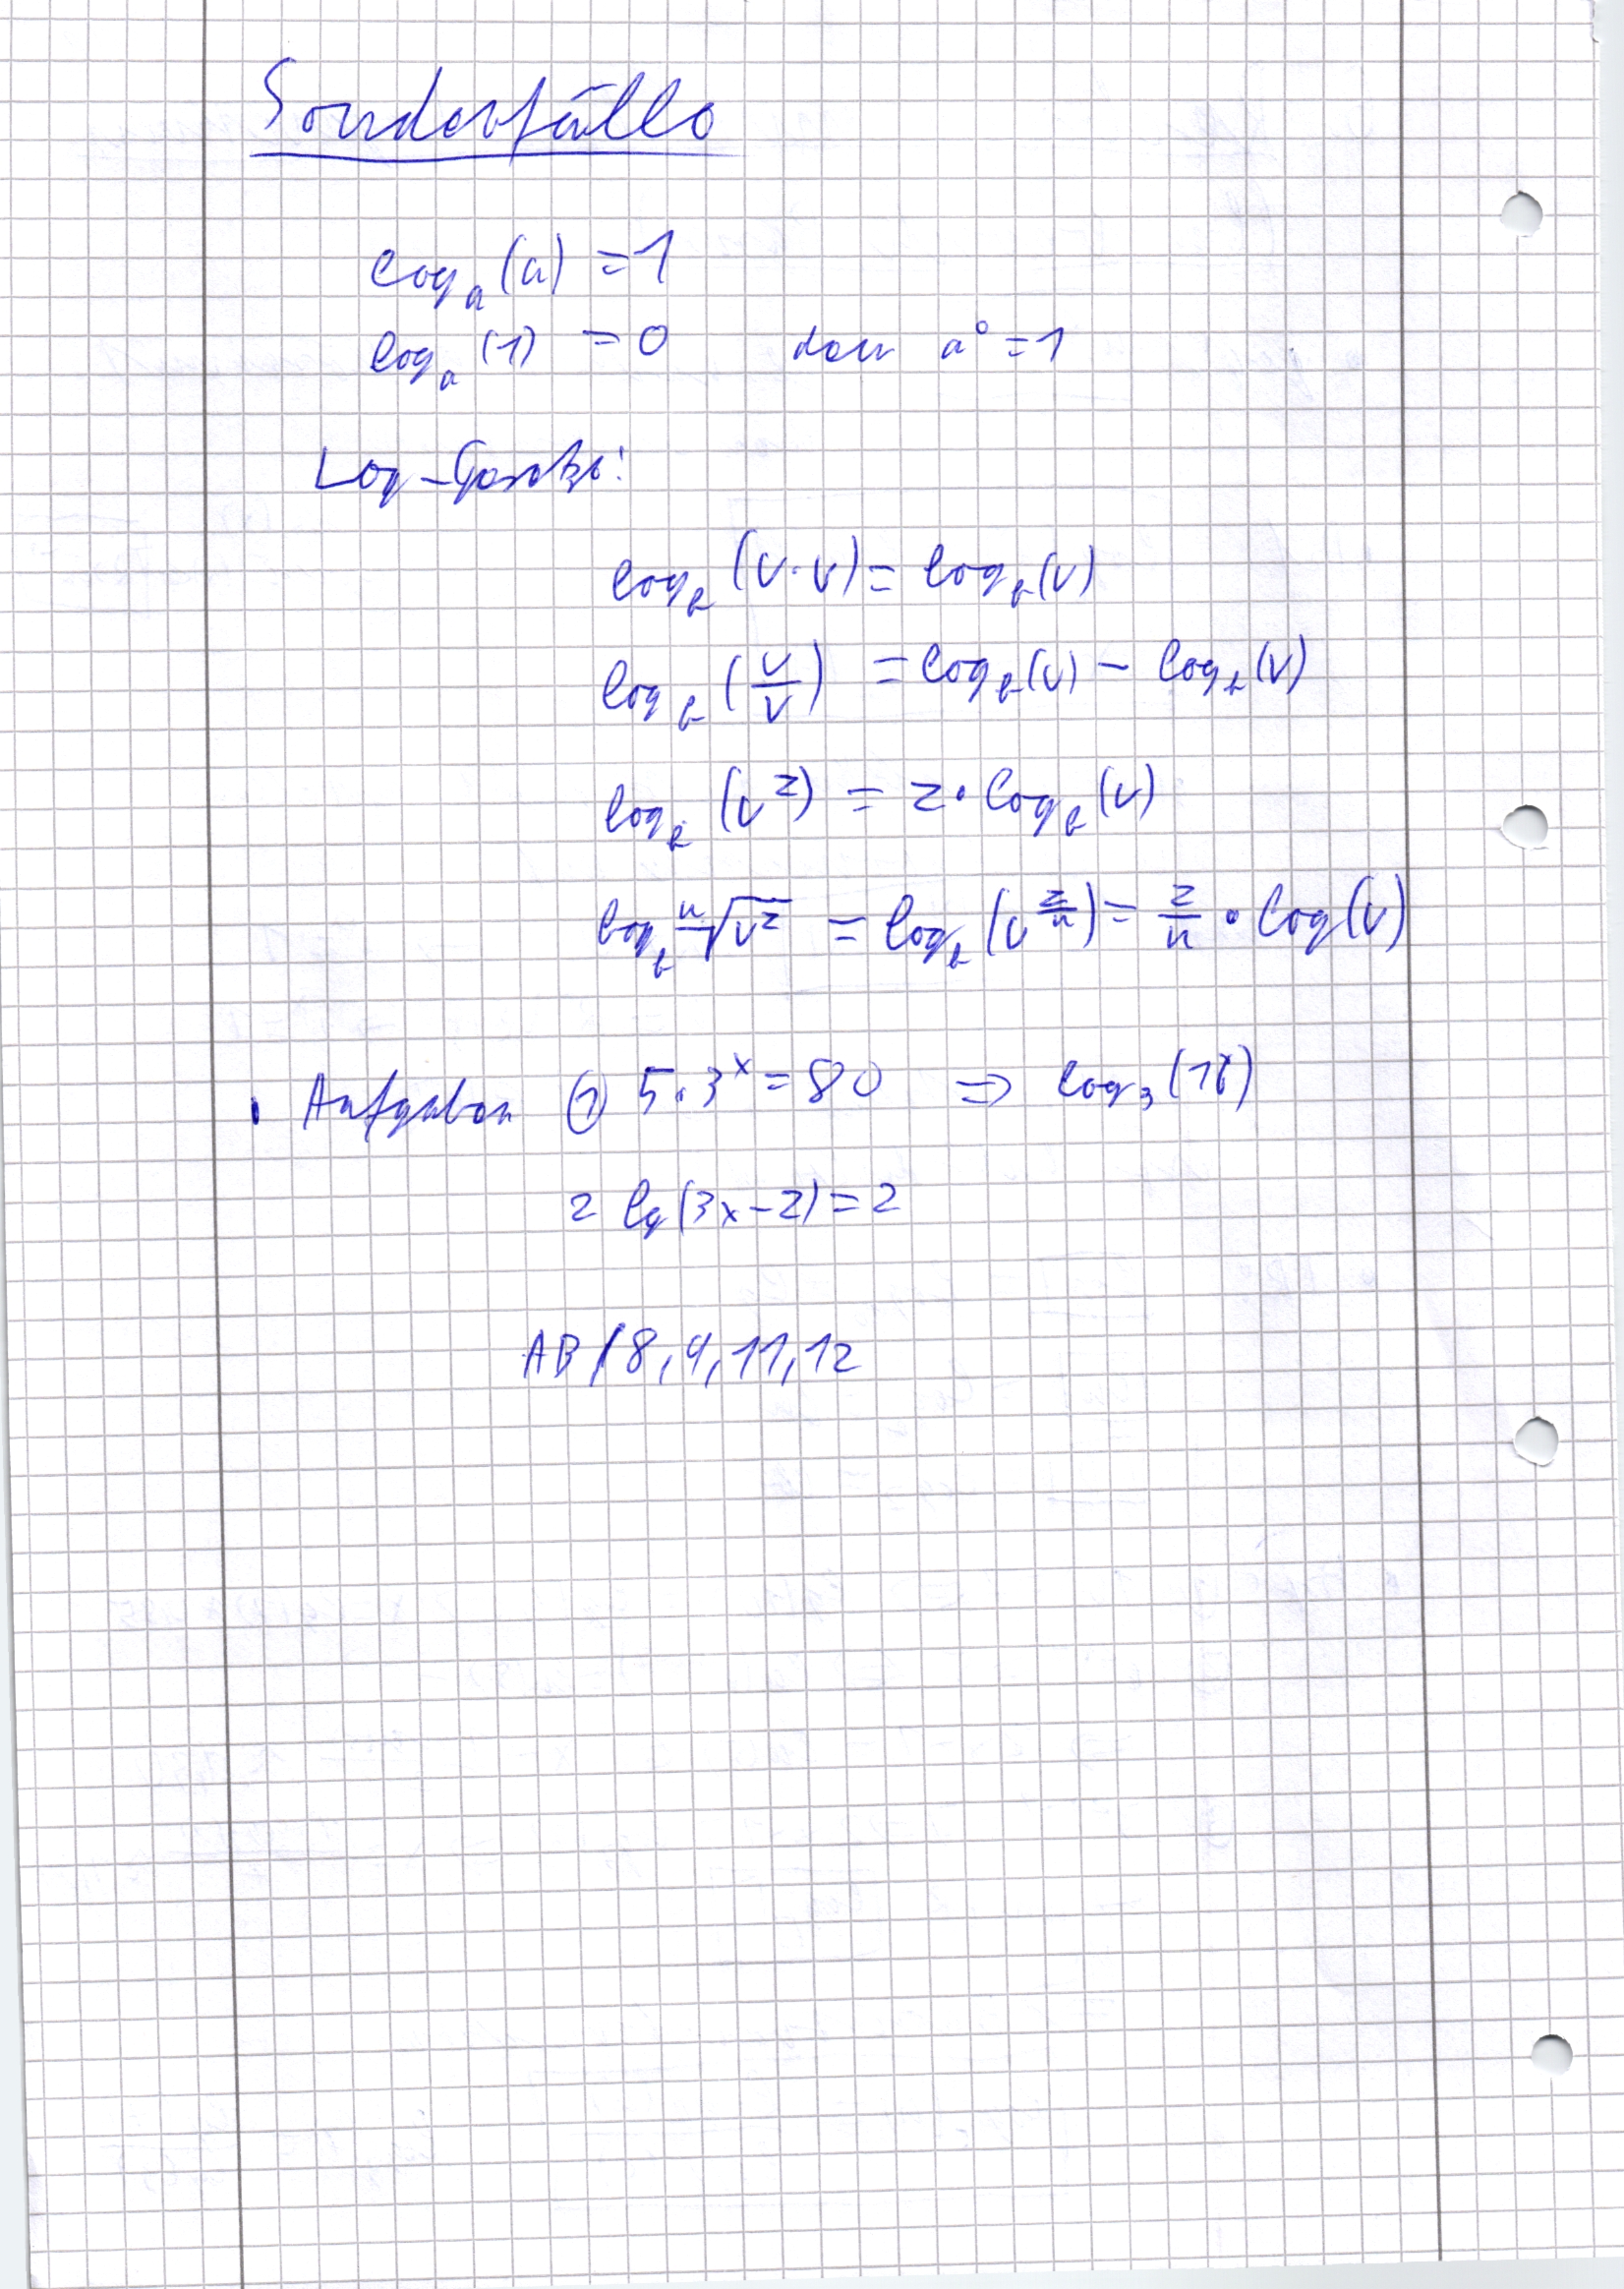 Sonderfälle
log_a (a) = 1
log_a (1) = 0 denn a^0 = 1
Log-Gesetze:
log_b (u · v) = log_b (u)
log_b (u/v) = log_b (u) - log_b (v)
log_b (u^z) = z · log_b (u)
log_b ⁿ√u^z = log_b (u^(z/n)) = z/n · log(u)
• Aufgaben ① 5 · 3^x = 80 ⇒ log_3 (16)
2 lg(3x-2) = 2
AB / 8, 9, 11, 12